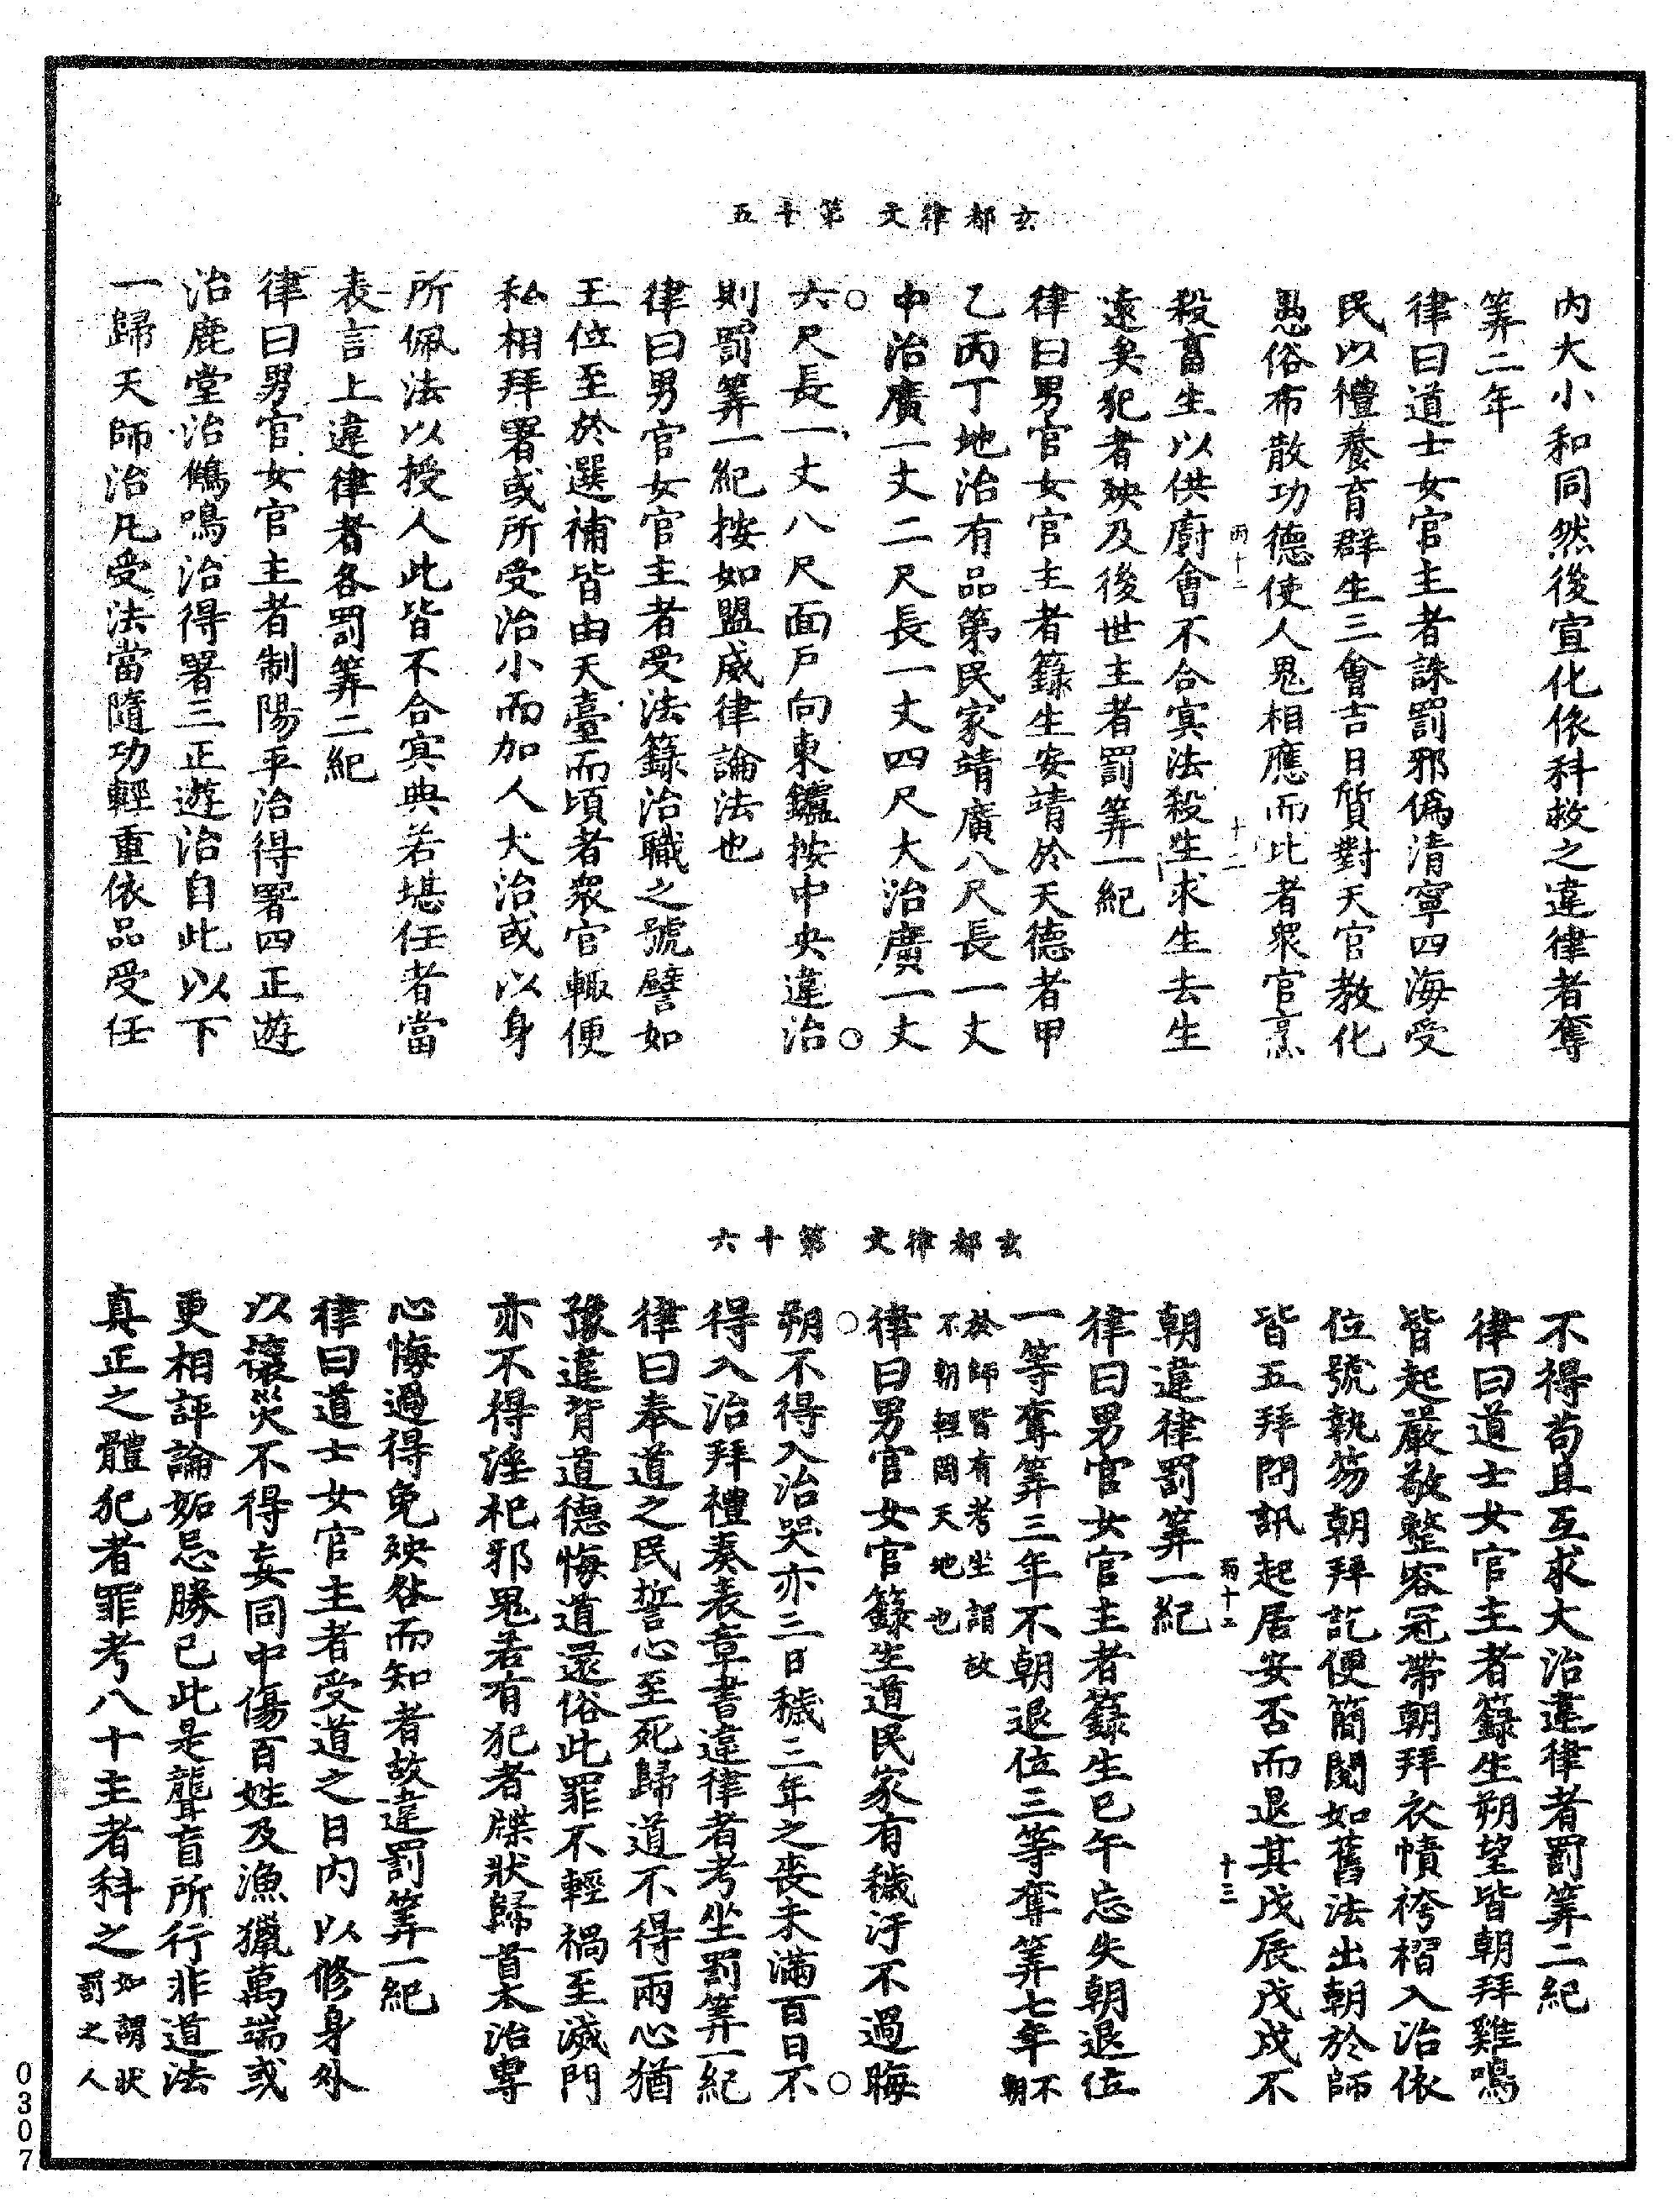 玄都律文　第十五
內大小和同然後宣化依科救之違律者奪
筭二年
律曰道士女官主者誅罰邪僞清寧四海受
民以禮養育群生三會吉日質對天官教化
愚俗布散功德使人鬼相應而此者眾官烹
雨十二　十二
殺畜生以供廚會不合冥法殺生求生去生
遠矣犯者殃及後世主者罰筭一紀
律曰男官女官主者籙生安靖於天德者甲
乙丙丁地治有品第民家靖廣八尺長一丈
中治廣一丈二尺長一丈四尺大治廣一丈
六尺長一丈八尺面戶向東鑪按中央違治
則罰筭一紀按如盟威律論法也
律曰男官女官主者受法籙治職之號譬如
王位至於選補皆由天臺而頃者眾官輙便
私相拜署或所受治小而加人大治或以身
所佩法以授人此皆不合冥典若堪任者當
表言上違律者各罰筭二紀
律曰男官女官主者制陽平治得署四正遊
治鹿堂治鶴鳴治得署三正遊治自此以下
一歸天師治凡受法當隨功輕重依品受任
玄都律文　第十六
不得苟且互求大治違律者罰筭二紀
律曰道士女官主者籙生朔望皆朝拜雞鳴
皆起嚴敬整容冠帶朝拜衣幘袴褶入治依
位號執笏朝拜訖便簡閱如舊法出朝於師
皆五拜問訊起居安否而退其戊辰戊戌不
雨十三　十三
朝違律罰筭一紀
律曰男官女官主者籙生巳午忘失朝退位
一等奪筭三年不朝退位三等奪筭七年不朝
於師皆有考坐謂故
不朝輕罔天地也
律曰男官女官籙生道民家有穢汙不過晦
朔不得入治哭亦三日穢三年之喪未滿百日不
得入治拜禮奏表章書違律者考坐罰筭一紀
律曰奉道之民誓心至死歸道不得兩心猶
豫違背道德悔道還俗此罪不輕禍至滅門
亦不得淫祀邪鬼若有犯者牒狀歸首本治專
心悔過得免殃咎而知者故違罰筭一紀
律曰道士女官主者受道之日內以修身外
以禳災不得妄同中傷百姓及漁獵萬端或
更相評論妬忌勝己此是聾盲所行非道法
真正之體犯者罪考八十主者科之如謂狀
罰之人
0307